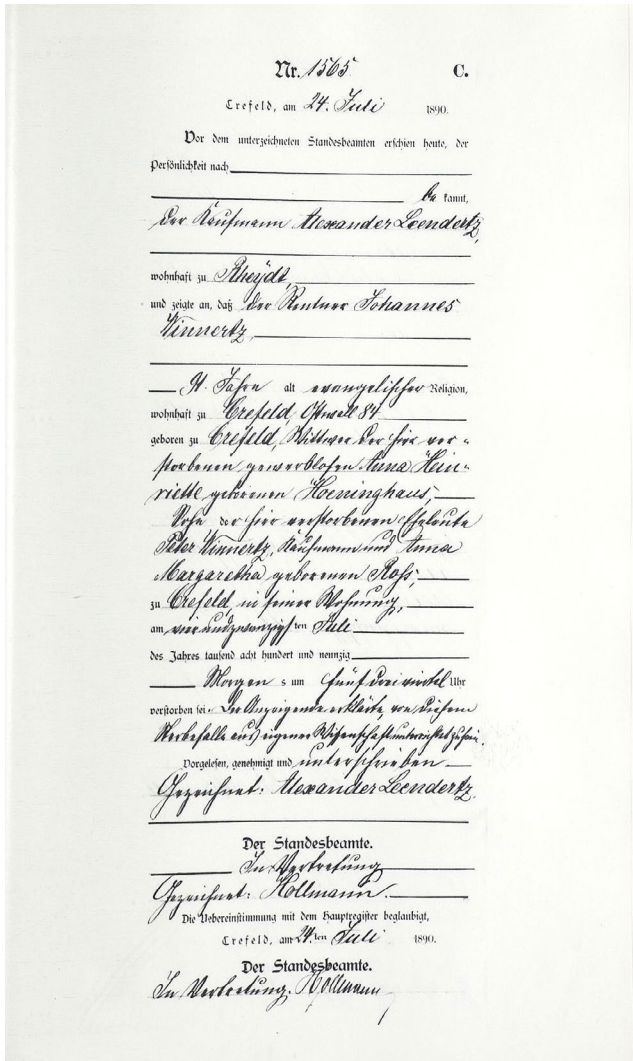 Nr. 1565. C.
Crefeld, am 24. Juli 1890.
Vor dem unterzeichneten Standesbeamten erschien heute, der
Persönlichkeit nach
be kannt,
der Kaufmann Alexander Leendertz,
wohnhaft zu Rheydt,
und zeigte an, daß der Rentner Johannes
Winnertz,
Jahre alt evangelischer Religion,
wohnhaft zu Crefeld, Ostwall 84
geboren zu Crefeld, Wittwer der hier ver-
storbenen gewerblosen Anna Hein-
riette geborenen Heninghaus,
Sohn der hier verstorbenen Eheleute
Peter Winnertz, Kaufmann und Anna
Margaretha geborenen Roß,
zu Crefeld, in seiner Wohnung,
am vierundzwanzigsten Juli
des Jahres tausend acht hundert und neunzig
Morgens um fünf dreiviertel Uhr
verstorben sei. Der Anzeigende erklärte, von diesem
Sterbefalle aus eigener Wissenschaft unterrichtet zu sein.
Vorgelesen, genehmigt und unterschrieben
Gezeichnet: Alexander Leendertz.
Der Standesbeamte.
In Vertretung
Gezeichnet: Hollmann.
Die Uebereinstimmung mit dem Hauptregister beglaubigt,
Crefeld, am 24.ten Juli 1890.
Der Standesbeamte.
In Vertretung. Hollmann